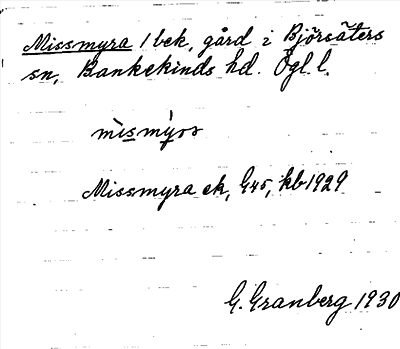 Missmyra 1 bek, gård i Björsäters
sn, Bankekinds hd. Ögl.
mìsmýrs
Missmyra ek, G45, kb 1929
G. Granberg 1930